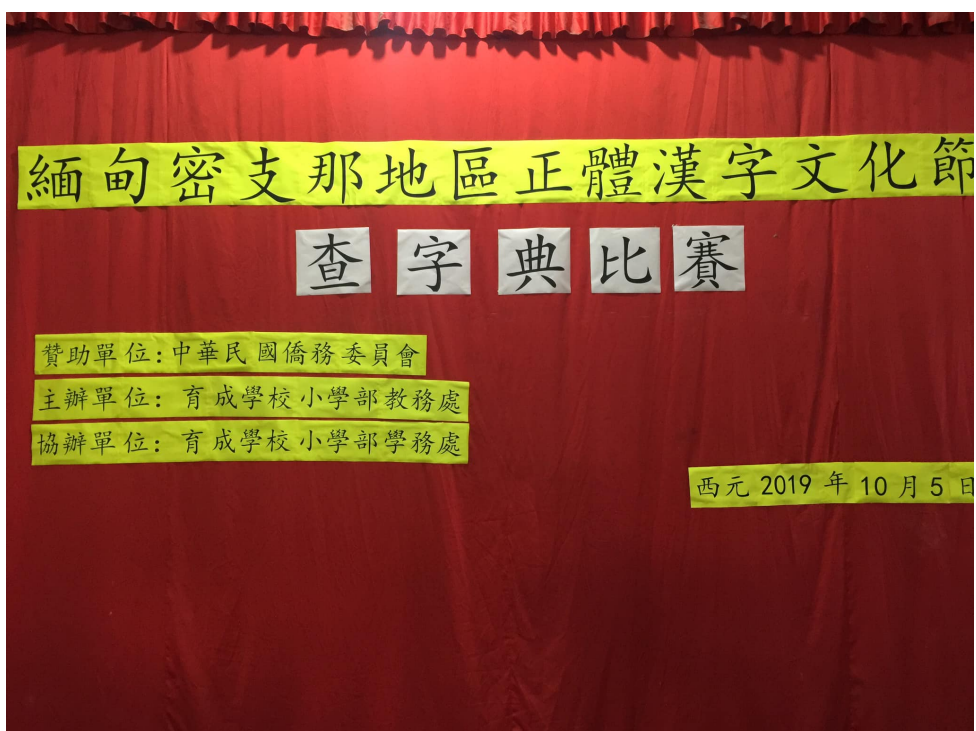 緬甸密支那地區正體漢字文化節
查字典比賽
贊助單位:中華民國僑務委員會
主辦單位:育成學校小學部教務處
協辦單位:育成學校小學部學務處
西元2019年10月5日